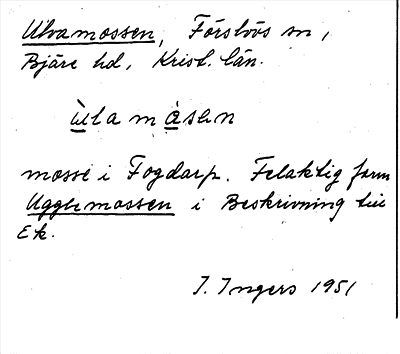 Ulvamossen, Förslövs sn,
Bjäre hd, Krist. län.
ùla m åsen
mosse i Fogdarp. Felaktig form
Ugglemossen i Beskrivning till
Ek.
I. Ingers 1951